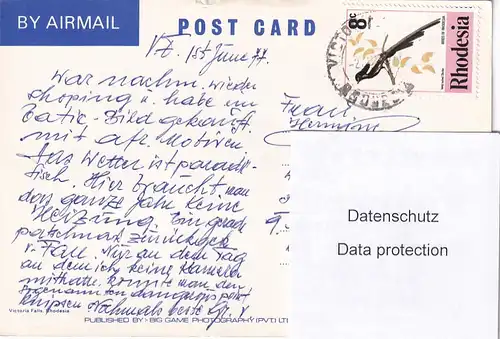 BY AIRMAIL
POST CARD
8c
Rhodesia
VF 1st June 77.
War nachm. wieder
shoping u. habe ein
Batic-Bild gekauft
mit afr. Motiven.
Das Wetter ist paradie-
sisch. Hier braucht man
das ganze Jahr keine
Heizung. Bin grad
patschnass zurück
v. Fall. Nur an dem Tag
an dem ich keine Kamera
mithatte, konnte man den
sogenannten
knipsen. Nochmals beste
Frau
Hermine
9.
Datenschutz
Data protection
Victoria Falls, Rhodesia
PUBLISHED BY - BIG GAME PHOTOGRAPHY (PVT) LT